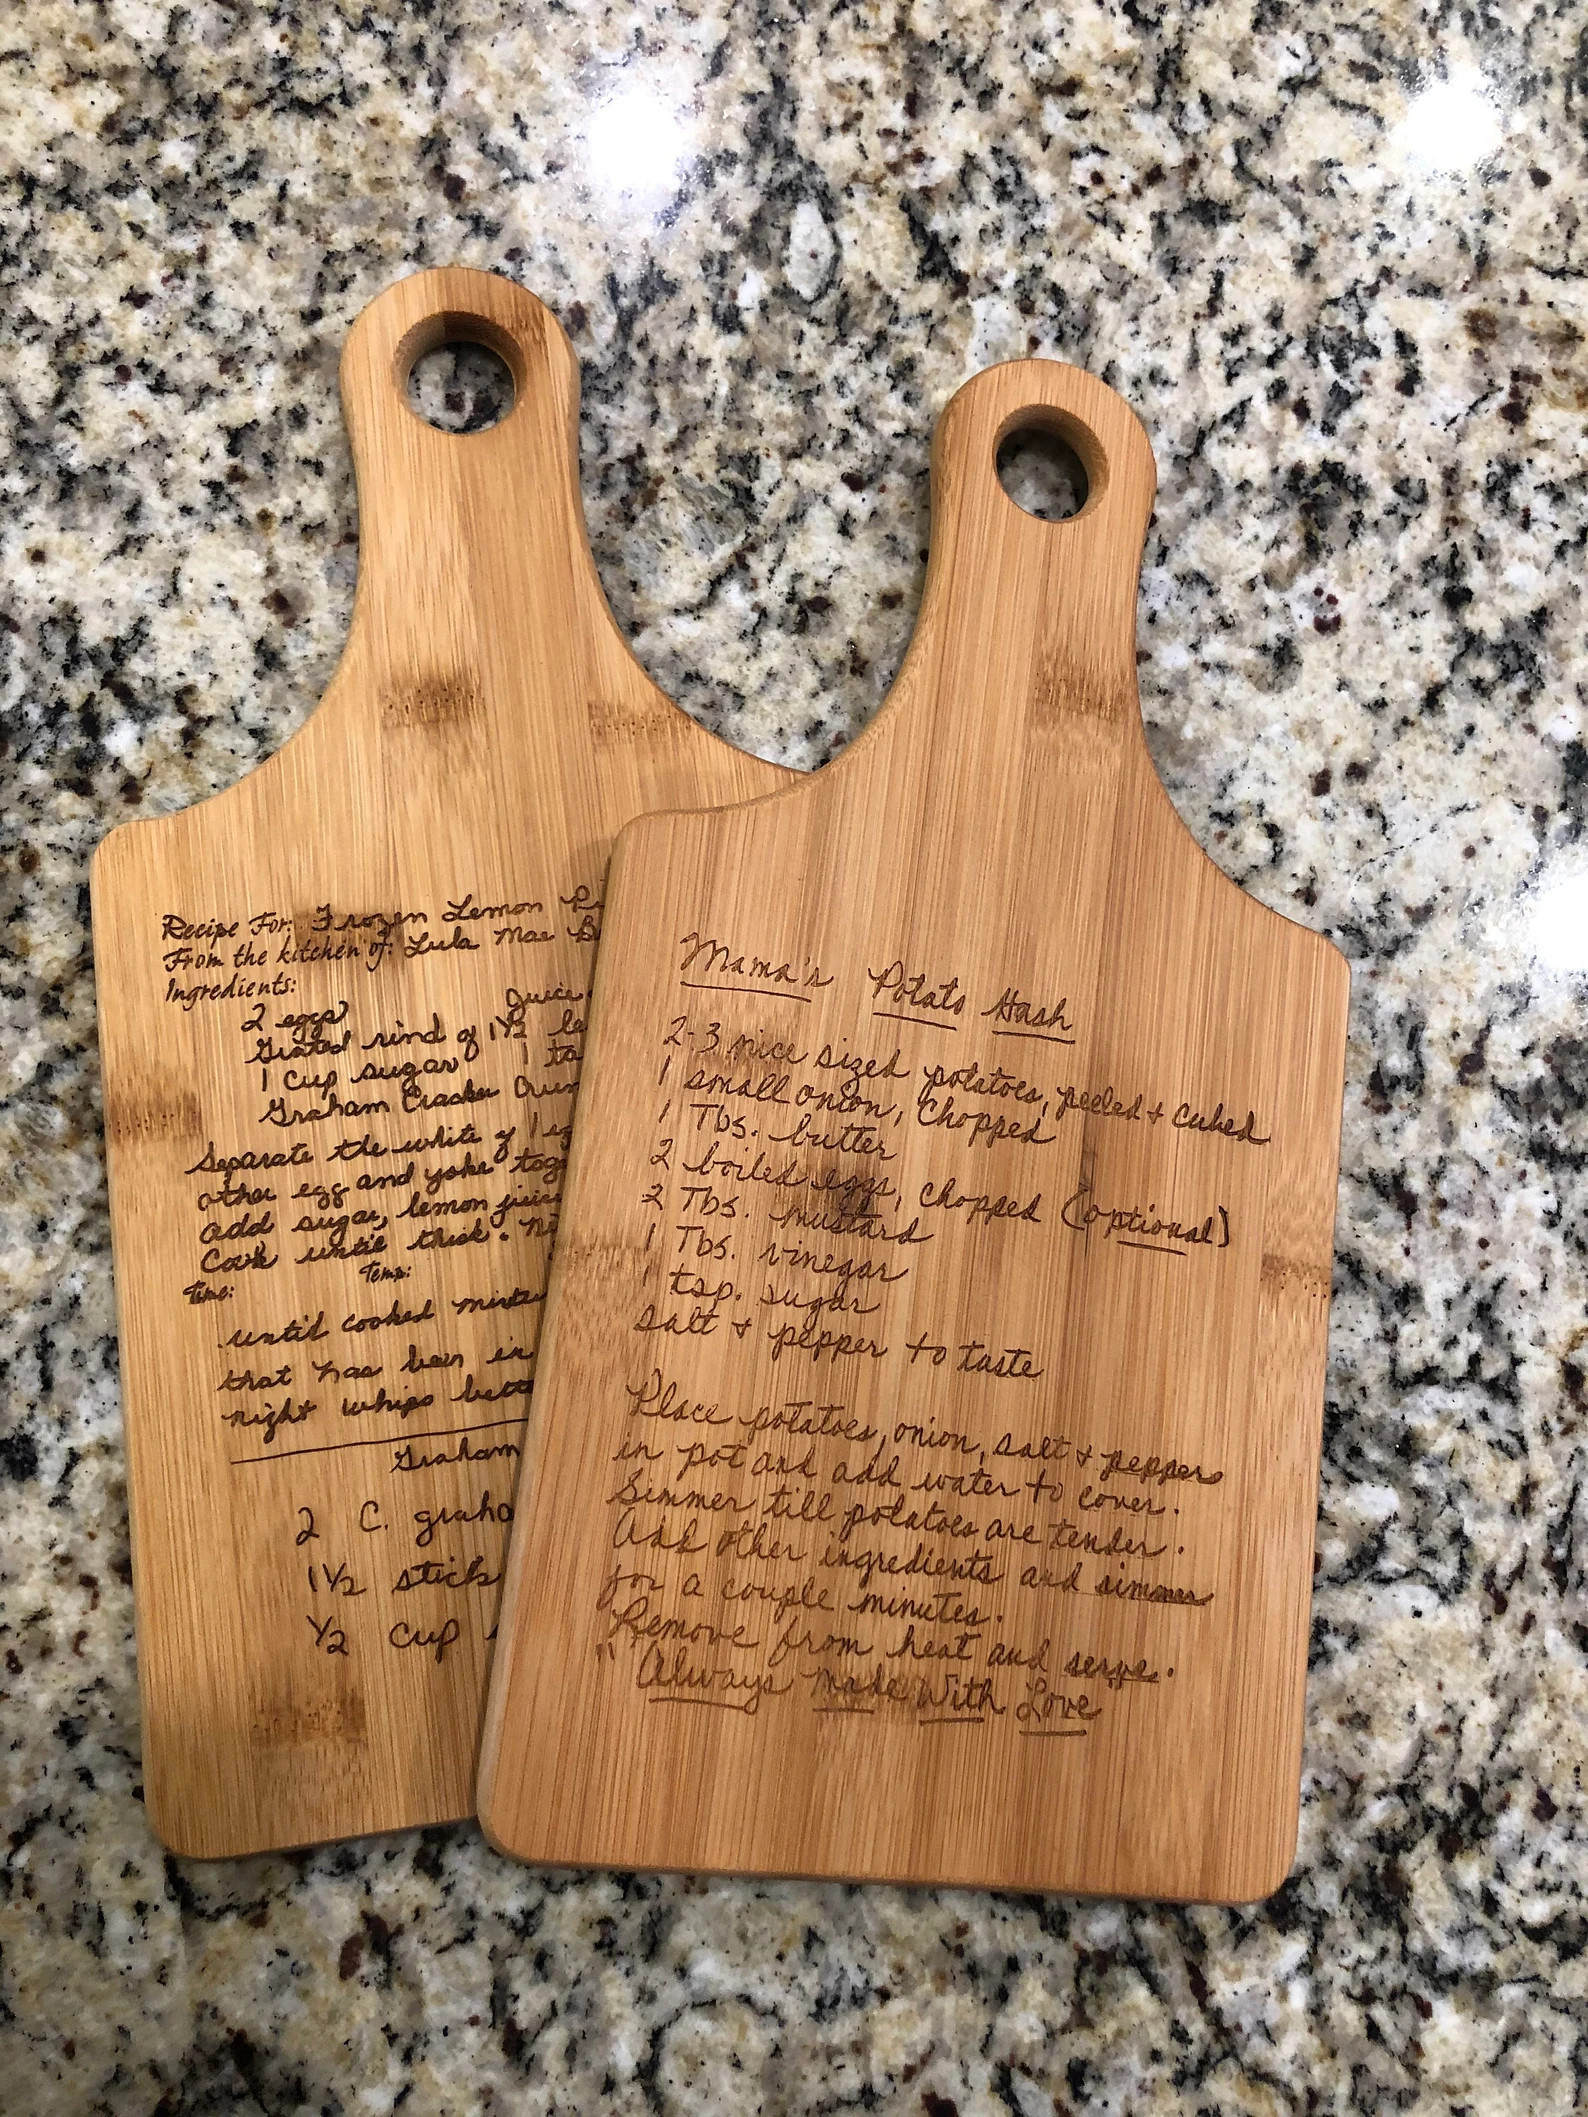 Recipe For: Frozen Lemon
From the kitchen of: Lula Mae
Ingredients:
2 eggs Juice
Grated rind of 1½
1 cup sugar 1
Graham Cracker
Separate the white of 1
other egg and yoke
add sugar, lemon juice
Cook until thick.
Time: Temp:
until cooked
that has been in
night whips
Graham
2 C.
1½ sticks
½ cup
Mama's Potato Hash
2-3 nice sized potatoes, peeled + cubed
1 small onion, chopped
1 Tbs. butter
2 boiled eggs, chopped (optional)
2 Tbs. mustard
1 Tbs. vinegar
1 tsp. sugar
salt + pepper to taste
Place potatoes, onion, salt + pepper
in pot and add water to cover.
Simmer till potatoes are tender.
Add other ingredients and simmer
for a couple minutes.
Remove from heat and serve.
"Always Made With Love"